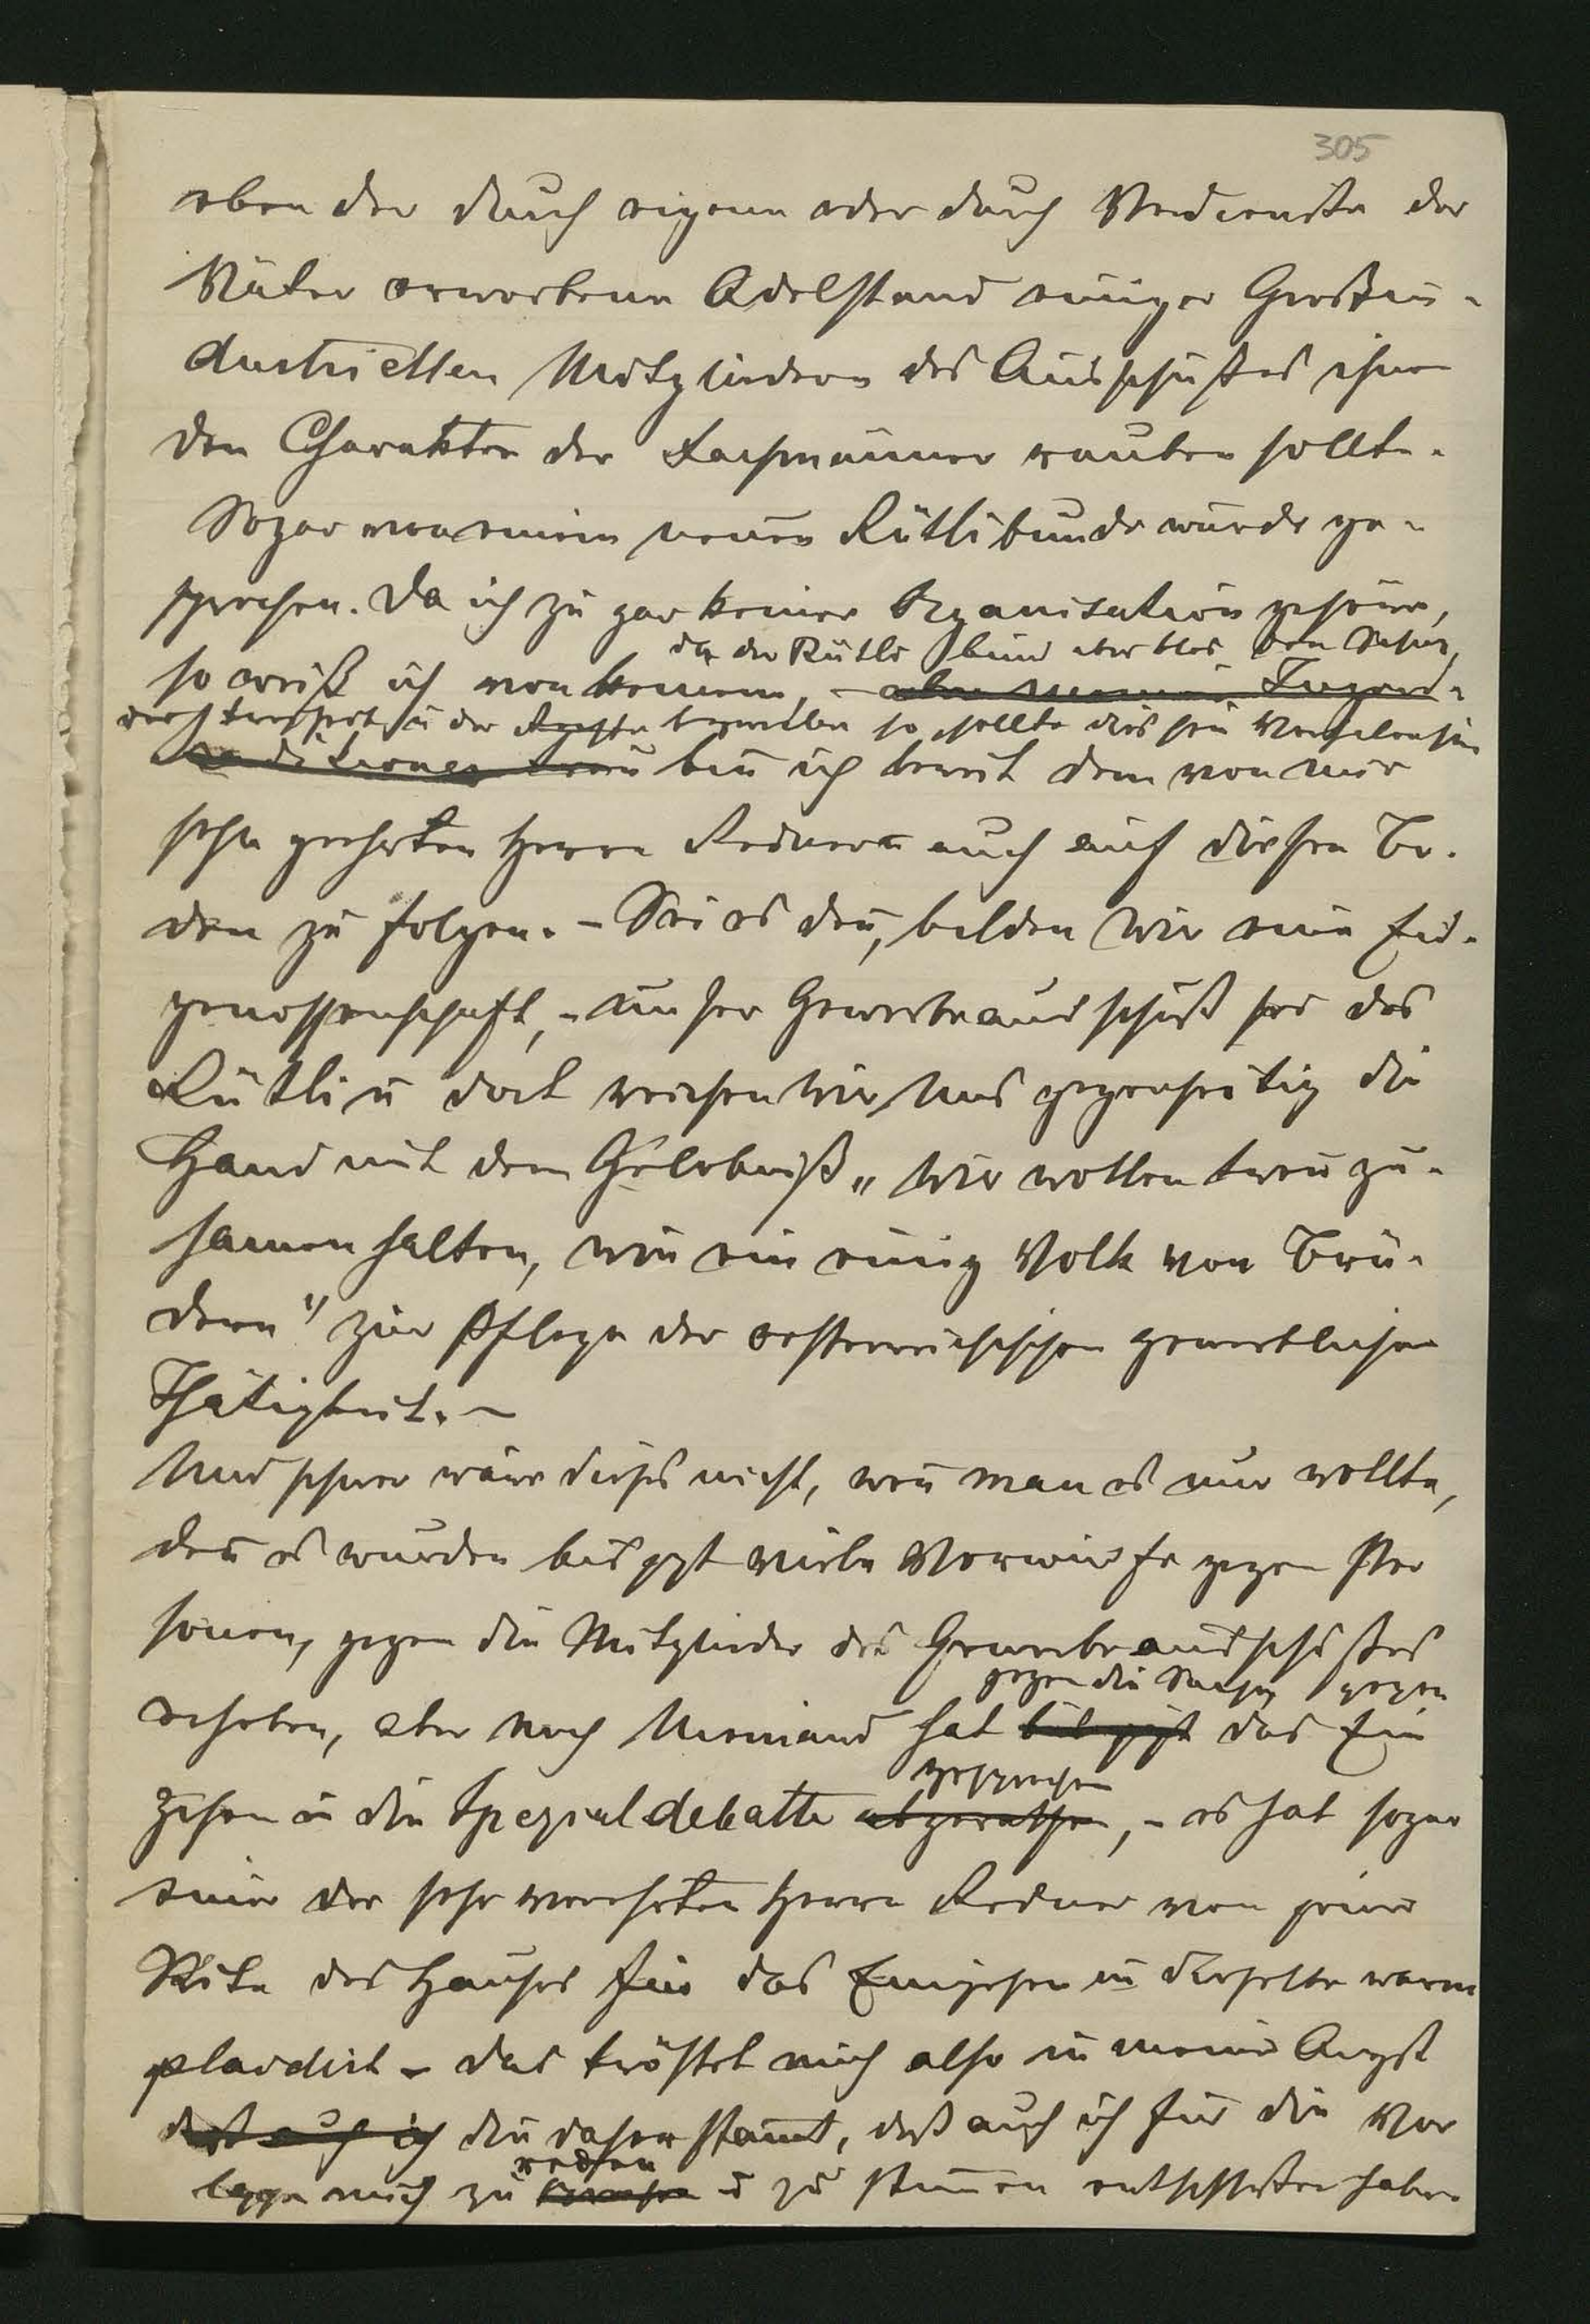 305
eben der durch eigene oder durch Verdienste der
Väter erworbene Adelstand einiger Großin-
dustriellen Mitgliedern des Ausschußes ihnen
den Charakter der Fachmänner rauben sollte.
Sogar von einem neuen Rütlibunde wurde ge-
sprochen. Da ich zu gar keiner Organisation gehöre,
da der Rütli bund aber blos den Schutz
so weiß ich von keinem, – aber meiner Jugend-
der Rechte so sollte dies sein
traditionen treu bin ich bereit dem von mir
sehr geehrten Herrn Redner auch auf diesen Bo-
den zu folgen. – Sei es den̄, bilden wir eine Eid-
genossenschaft, – unser Gewerbeausschuß sei das
Rütli u dort reichen wir uns gegenseitig die
Hand mit dem Gelöbniß „wir wollen treu zu-
samen halten, wie ein einig Volk von Brü-
dern" zur Pflege der oesterreichischen gewerblichen
Thätigkeit. –
Und schwer wäre dieses nicht, wen̄ man es nur wollte,
den̄ es wurden bis jezt viele Vorwürfe gegen Per
sonen, gegen die Mitglieder des Gewerbeausschußes
gegen die Sache, gegen
erhoben, aber noch Niemand hat bis jezt das Ein
gesprochen
gehen in die Spezialdebatte abgerathen, – es hat sogar
einer der sehr verehrten Herrn Redner von jener
Seite des Hauses für das Eingehen in dieselbe warm
plaidirt – das tröstet mich also in meiner Angst
daß auch ich die daher stam̄t, daß auch ich für die Vor
reden
lage mich zu u zu stim̄en entschloßen habe.